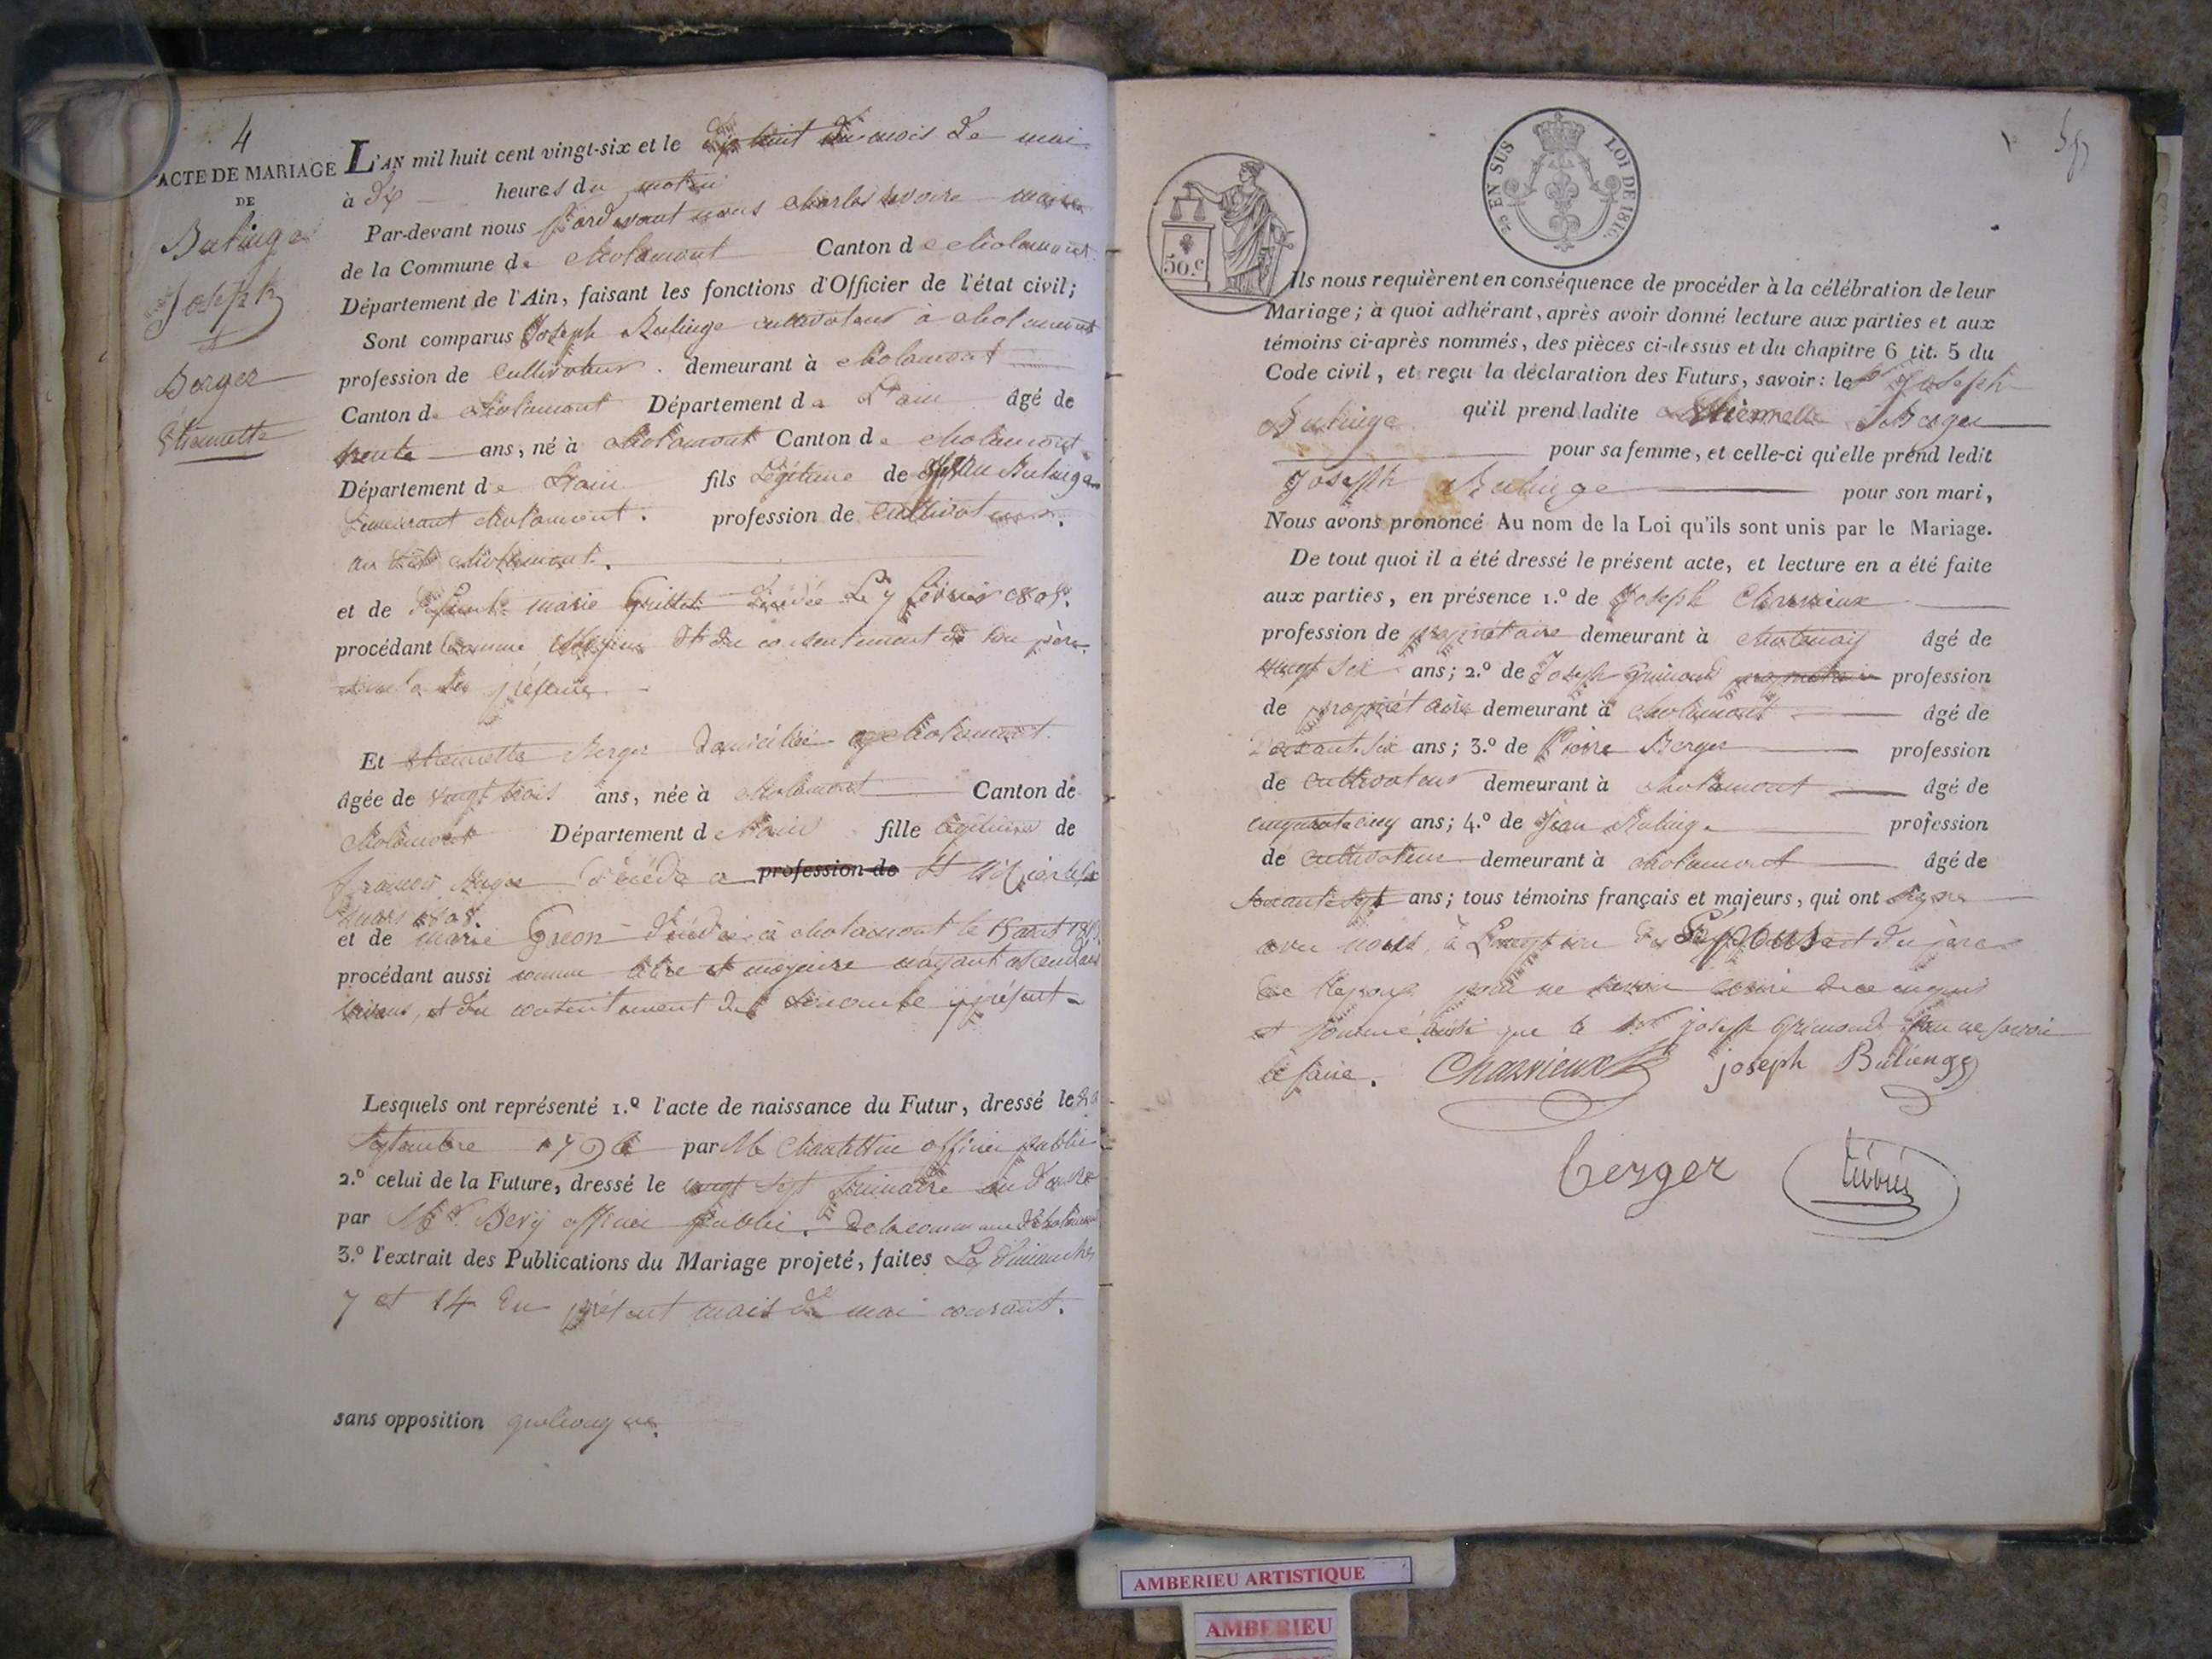 4
ACTE DE MARIAGE
DE
Bulinge
Joseph
et
Berger
Etiennette
L'AN mil huit cent vingt-six et le dix huit du mois de mai
à dix heures du matin
Par-devant nous Pardevant nous Charles maire
de la Commune de Cholamont Canton de Cholamont
Département de l'Ain, faisant les fonctions d'Officier de l'état civil;
Sont comparus Joseph Bulinge cultivateur à Cholamont
profession de Cultivateur demeurant à Cholamont
Canton de Cholamont Département de L'ain âgé de
trente ans, né à Cholamont Canton de Cholamont
Département de L'ain fils Légitime de Jean Bulinge
Demeurant Cholamont. profession de Cultivateur.
au dit Cholamont.
et de Defunte marie Guillet Décédée Le 7 février
procédant Comme Majeur Et du consentement de son père
présent
Et Etiennette Berger domiciliée a Cholamont
âgée de vingt trois ans, née à Cholamont Canton de
Cholamont Département de L'ain fille légitime de
françois Berger Décédé a profession de St
mars 1808.
et de marie Greon Décédée à Cholamont le 15
procédant aussi comme libre et majeure n'ayant ascendans
vivans, et du consentement de présent
Lesquels ont représenté 1.º l'acte de naissance du Futur, dressé le
Septembre par Mr officier public
2.º celui de la Future, dressé le vingt sept frimaire an douze
par Mr. Bery officier public. de la commune de Cholamont
3.º l'extrait des Publications du Mariage projeté, faites Les Dimanches
7 et 14 du présent mois de mai courant.
sans opposition quelconque.
50.c
25 EN SUS LOI DE 1816.
Ils nous requièrent en conséquence de procéder à la célébration de leur
Mariage; à quoi adhérant, après avoir donné lecture aux parties et aux
témoins ci-après nommés, des pièces ci-dessus et du chapitre 6 tit. 5 du
Code civil, et reçu la déclaration des Futurs, savoir: le Sr Joseph
Bulinge qu'il prend ladite Etiennette Berger
pour sa femme, et celle-ci qu'elle prend ledit
Joseph Bulinge pour son mari,
Nous avons prononcé Au nom de la Loi qu'ils sont unis par le Mariage.
De tout quoi il a été dressé le présent acte, et lecture en a été faite
aux parties, en présence 1.º de Joseph Charvieux
profession de propriétaire demeurant à âgé de
vingt six ans; 2.º de Joseph Grimond propriétaire profession
de propriétaire demeurant à Cholamont âgé de
soixante six ans; 3.º de Pierre Berger profession
de Cultivateur demeurant à Cholamont âgé de
cinquante cinq ans; 4.º de Jean Bulinge profession
de Cultivateur demeurant à Cholamont âgé de
soixante sept ans; tous témoins français et majeurs, qui ont signé
avec nous, à L'exception de L'épouse et du père
de l'époux pour ne savoir écrire de ce enquis
et sommé ainsi que le Sr joseph Grimond pour ne savoir
le faire. Charvieux joseph Bulienge
berger
AMBERIEU ARTISTIQUE
AMBERIEU